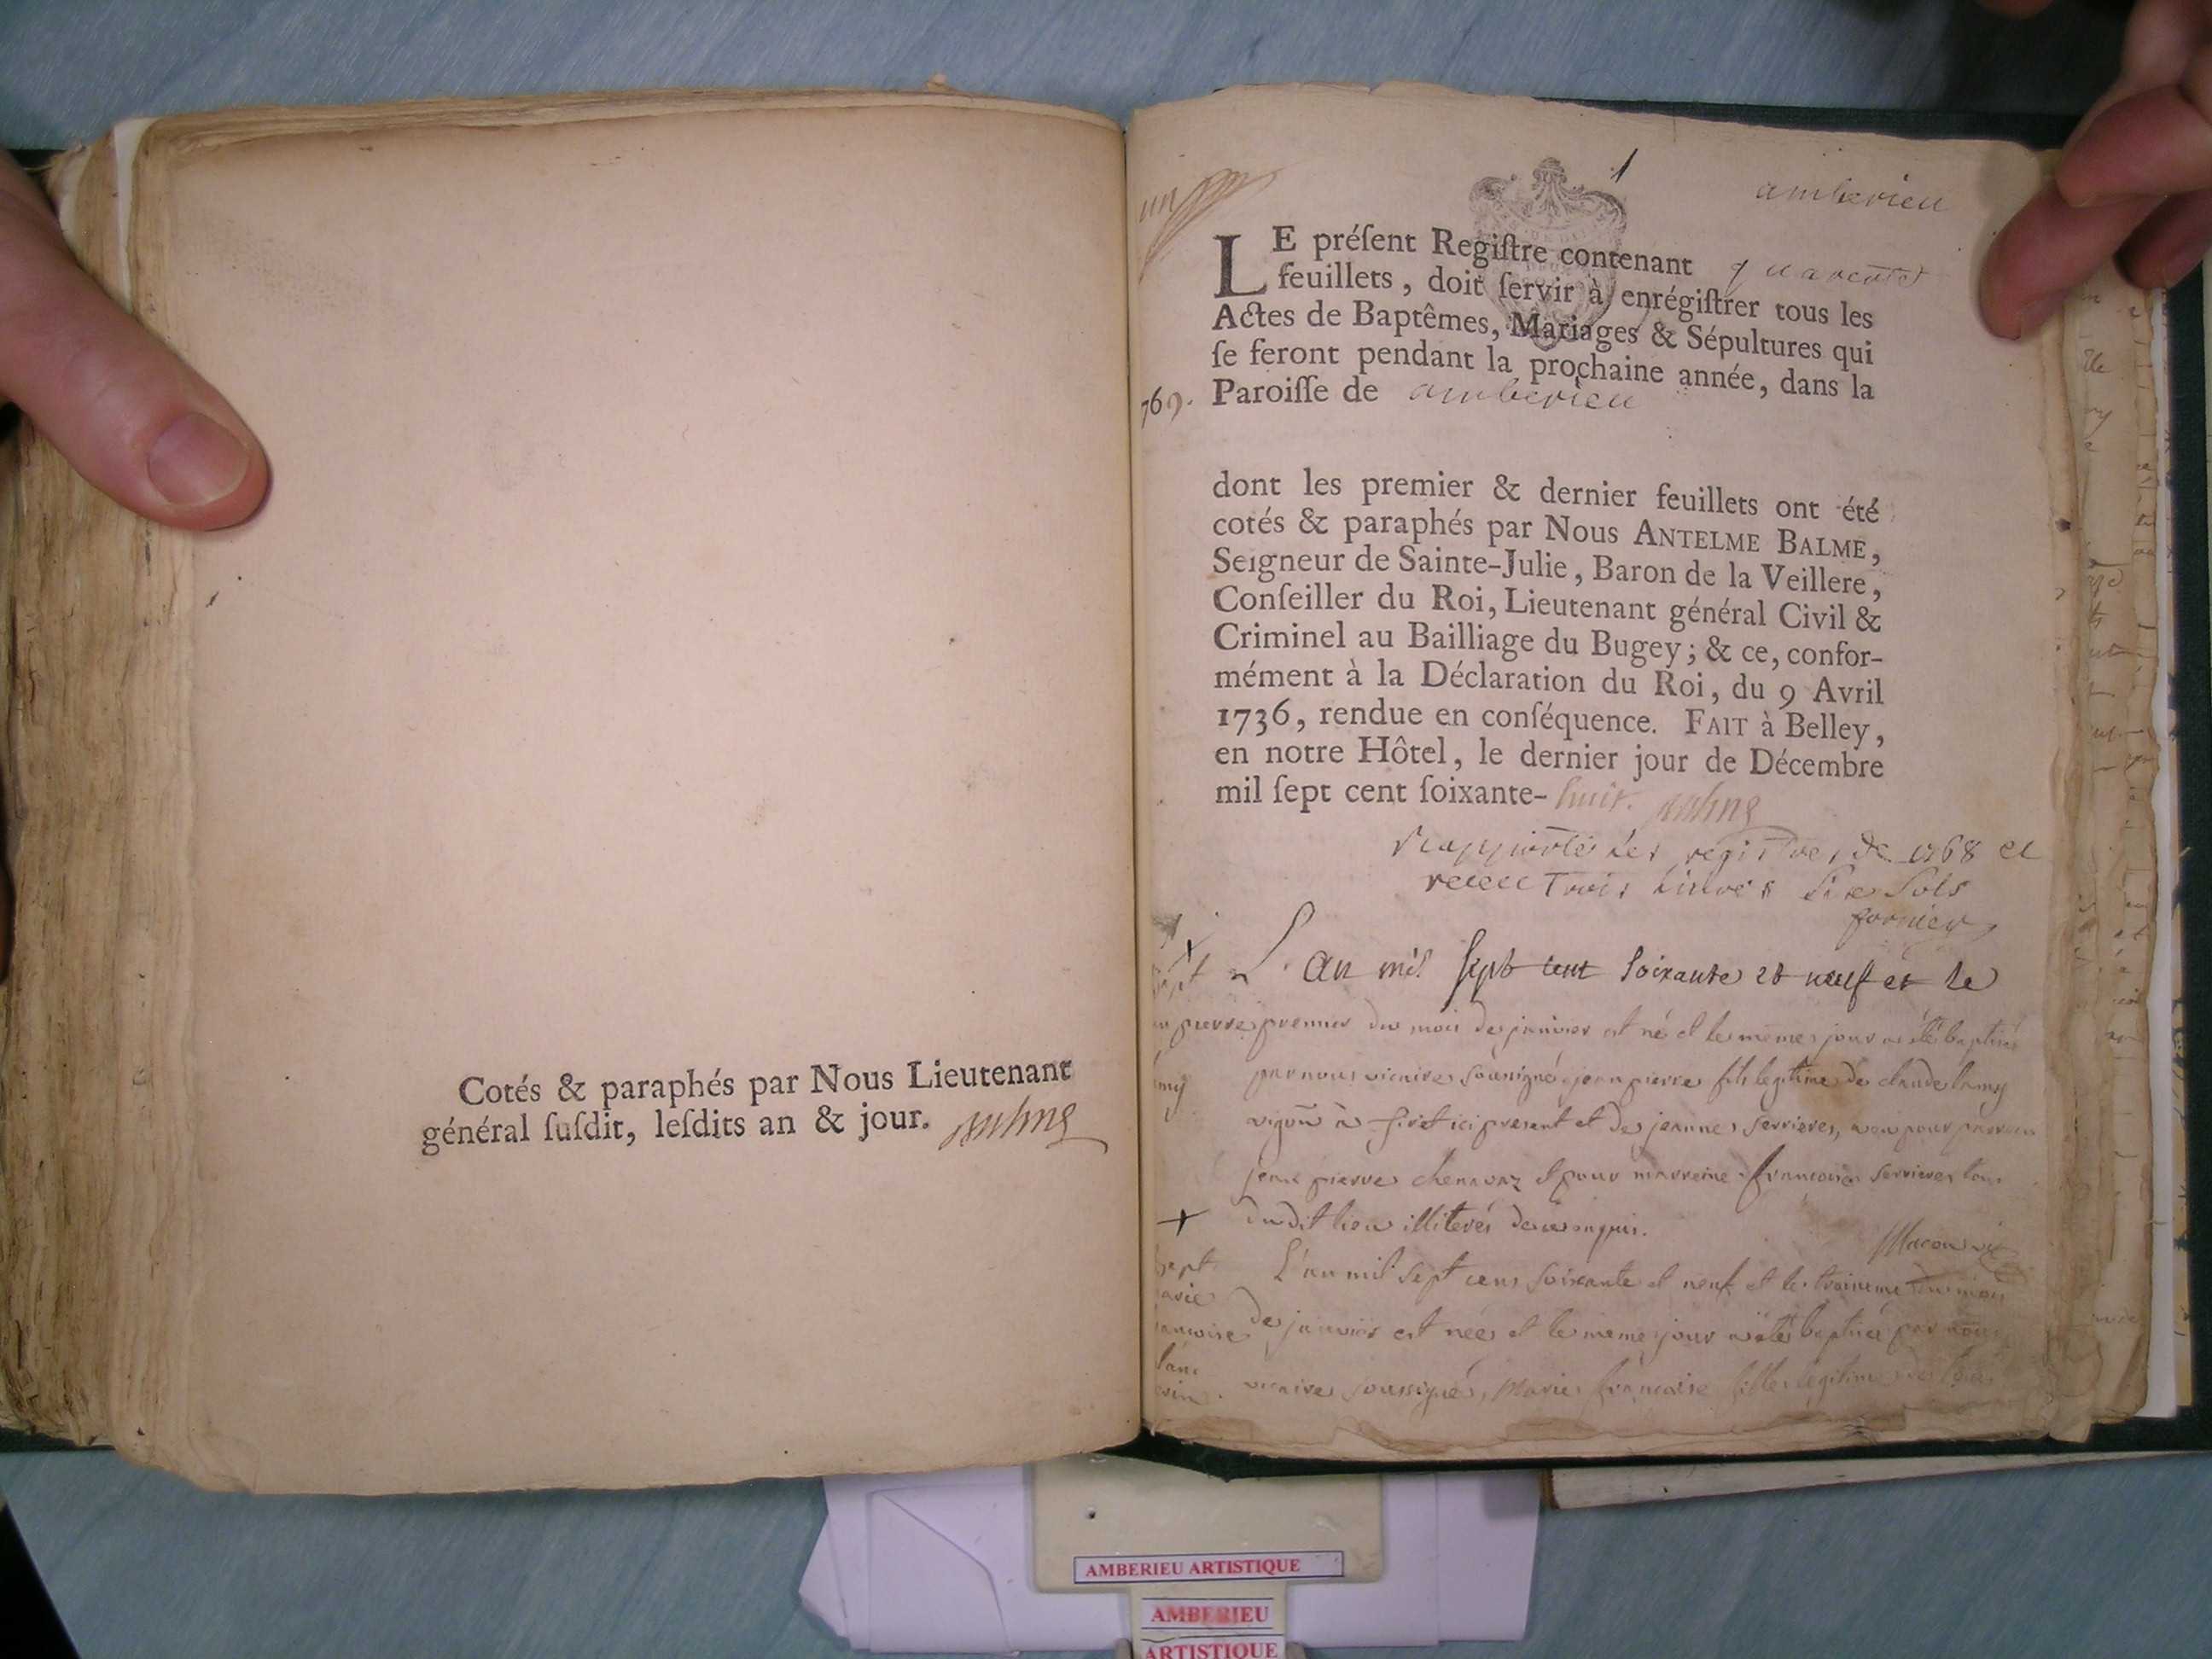 Cotés & paraphés par Nous Lieutenant
général ſuſdit, leſdits an & jour.
1
amberieu
LE préſent Regiſtre contenant quarente
feuillets, doit ſervir à enrégiſtrer tous les
Actes de Baptêmes, Mariages & Sépultures qui
ſe feront pendant la prochaine année, dans la
769. Paroiſſe de amberieu
dont les premier & dernier feuillets ont été
cotés & paraphés par Nous ANTELME BALME,
Seigneur de Sainte-Julie, Baron de la Veillere,
Conſeiller du Roi, Lieutenant général Civil &
Criminel au Bailliage du Bugey; & ce, confor-
mément à la Déclaration du Roi, du 9 Avril
1736, rendue en conſéquence. FAIT à Belley,
en notre Hôtel, le dernier jour de Décembre
mil ſept cent ſoixante-huit.
rapporté les registres de 1768 et
receu Trois Livres Six Sols
L'an mil sept cent soixante et neuf et le
premier du mois de janvier est né et le meme jour a été baptisé
par nous vicaire soussigné jean pierre fils legitime de claude lamy
vigñ à ici present et de jeanne serrieres,
jean pierre chenavaz et pour marreine francoise serrieres tous
dudit lieu illiterés de ce enquis.
L'an mil sept cens soixante et neuf et le troisieme du mois
de janvier est née et le meme jour a été baptisée par nous
vicaire soussigné, Marie francoise fille legitime de
AMBERIEU ARTISTIQUE
AMBERIEU
ARTISTIQUE